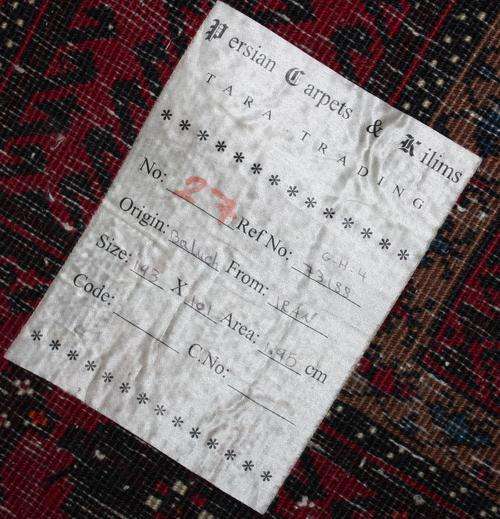 Persian Carpets & Kilims
TARA TRADING
* * * * * * * * * * * * * *
No: 27 Ref No: G.H.4
73188
Origin: Baluch From: IRAN
Size: 193 X 101 Area: 1.95 cm
Code: C.No:
* * * * * * * * * * * * *